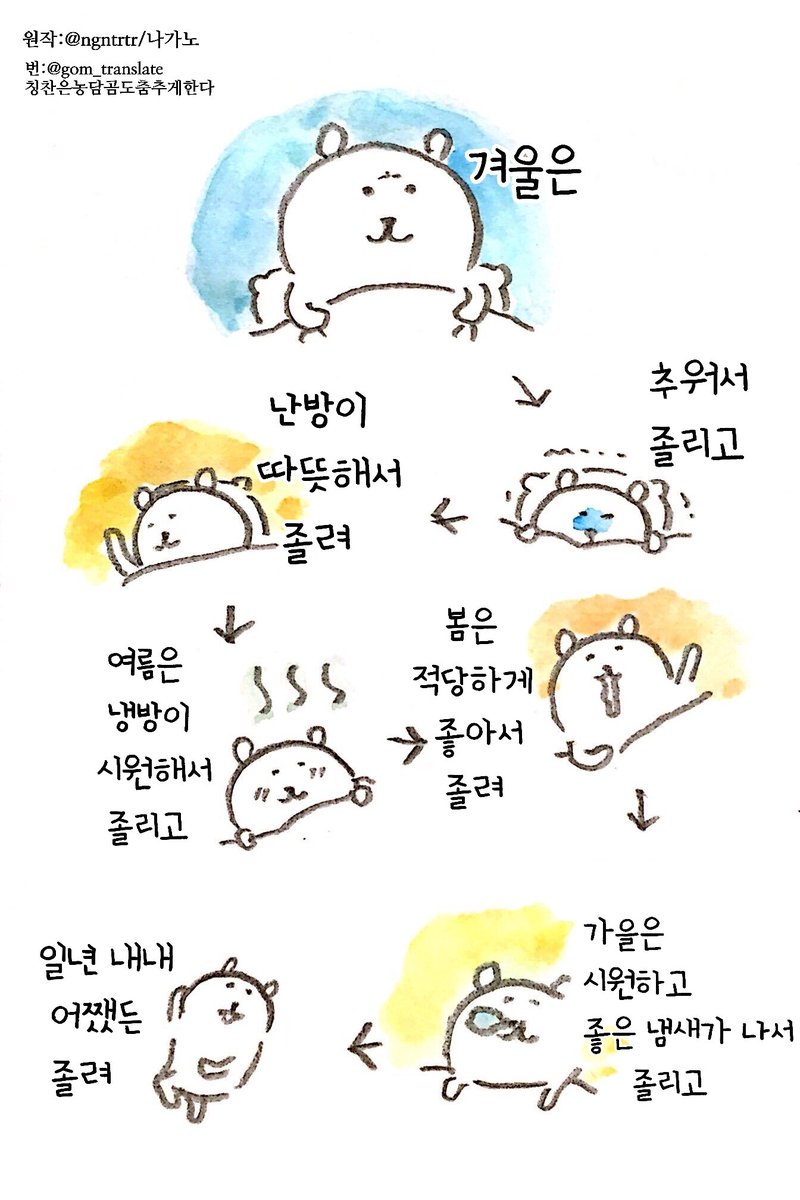 원작:@ngntrtr/나가노
번:@gom_translate
칭찬은농담곰도춤추게한다
겨울은
추워서
졸리고
난방이
따뜻해서
졸려
여름은
냉방이
시원해서
졸리고
봄은
적당하게
좋아서
졸려
가을은
시원하고
좋은 냄새가 나서
졸리고
일년 내내
어쨌든
졸려